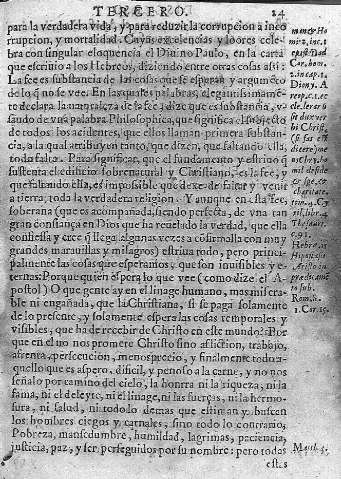 TERCERO. 24
para la verdadera vida, y para reduzir la corrupcion a inco
rrupcion, y mortalidad. Cuyas excelencias y loores cele-
bra con singular eloquencia el Diuino Paulo, en la carta
que escriuio a los Hebreos, diziendo entre otras cosas assi:
La fee es substancia de las cosas que se esperan y argumẽto
de lo q̃ no se vee. En las quales palabras, elegantissimamẽ-
te declara la naturaleza de la fee: dize que es substancia, v-
sando de vna palabra Philosophica, que significa el subjecto
de todos los accidentes, que ellos llaman primera substan-
cia, a la qual atribuyen tanto, que dizen, que faltando ella,
todo falta. Para significar, que el fundamento y estriuo q̃
sustenta el edificio sobrenatural y Christiano, es la fee, y
que faltando ella, es impossible que dexe de faltar y venir
a tierra, toda la verdadera religion. Y aunque en esta fee
soberana (que es acompañada, siendo perfecta, de vna tan
gran confiança en Dios que ha reuelado la verdad, que ella
confiessa y cree q̃ llega algunas vezes a confirmalla con muy
grandes marauillas y milagros) estriua todo, pero princi-
palmente las cosas que esperamos, que son inuisibles y e-
ternas: Porque quien espera lo que vee (como dize el A-
postol) O que gente ay en el linage humano, mas misera-
ble ni engañada, que la Christiana, si se paga solamente
de lo presente, y solamente espera las cosas temporales y
visibles, que ha de recebir de Christo en este mundo? Por
que en el no nos promete Christo sino afliction, trabajo,
afrenta, persecucion, menosprecio, y finalmente todo a-
quello que es aspero, dificil, y penoso a la carne, y no nos
señalo por camino del cielo, la honrra ni la riqueza, ni la
fama, ni el deleyte, ni el linage, ni las fuerças, ni la hermo-
sura, ni salud, ni todo lo demas que estiman y buscan
los hombres ciegos y carnales, sino todo lo contrario,
Pobreza, mansedumbre, humildad, lagrimas, paciencia,
justicia, paz, y ser perseguidos por su nombre: pero todas
estas
Rom. 8.
1. Cor. 15.
Math. 5.